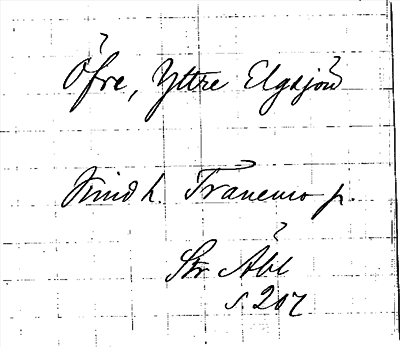 Öfre, Yttre Elgsjön
Kind h. Tranemo p.
Str Åbl
s 207